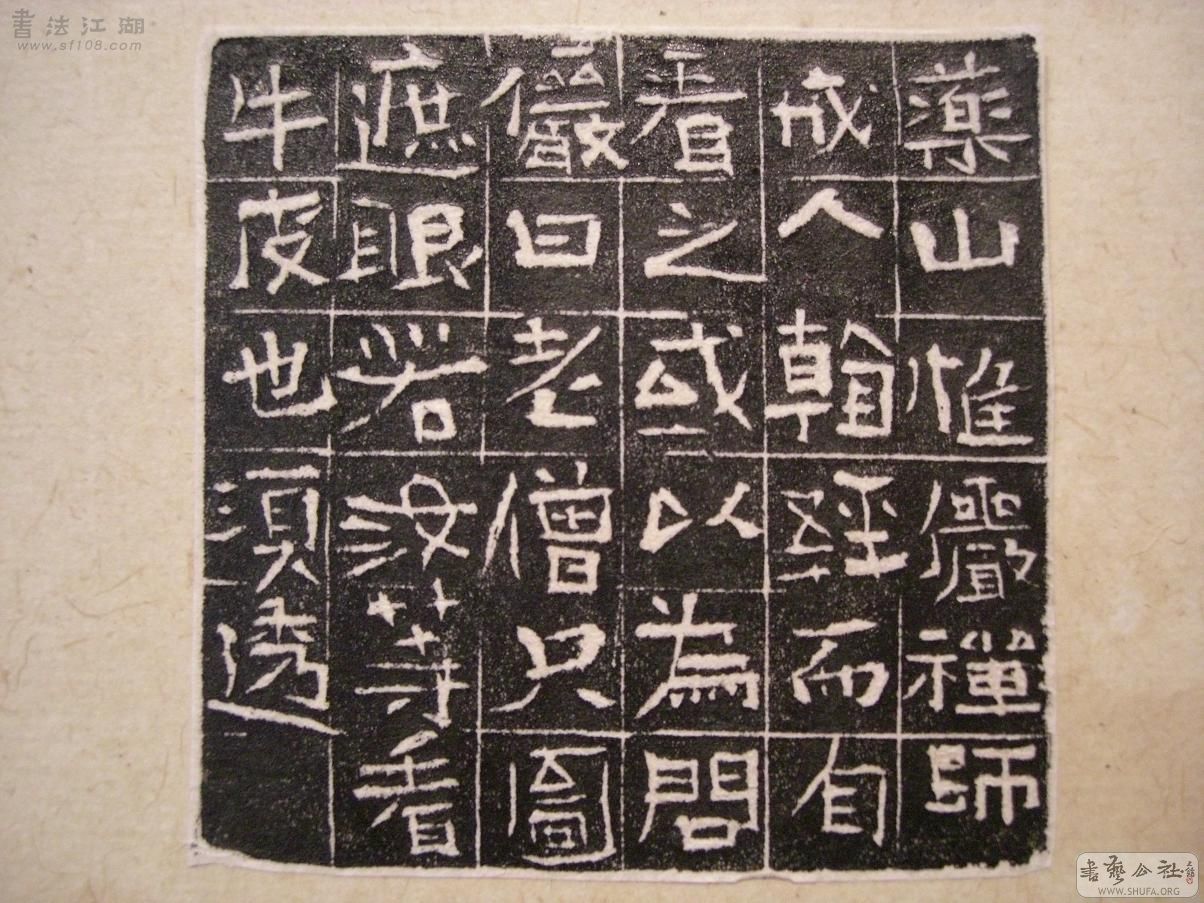 藥山惟儼禪師
戒人翰經而自
看之或以為問
儼曰老僧只圖
遮眼若汝等看
牛皮也須透
書法江湖
www.sf108.com
書藝公社
WWW.SHUFA.ORG